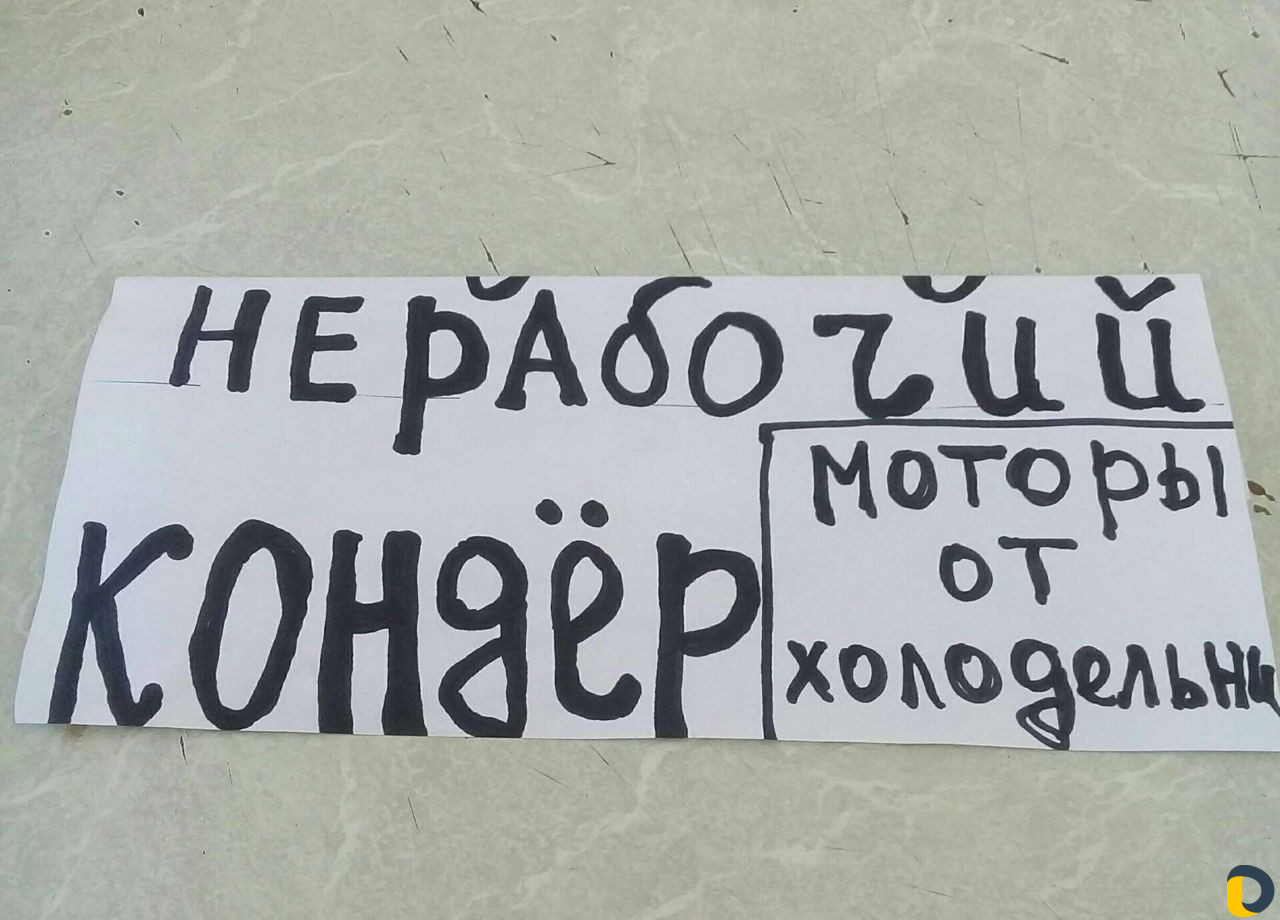 НЕРАБОЧИЙ
КОНДЁР
МОТОРЫ
ОТ
ХОЛОДЕЛЬНИ